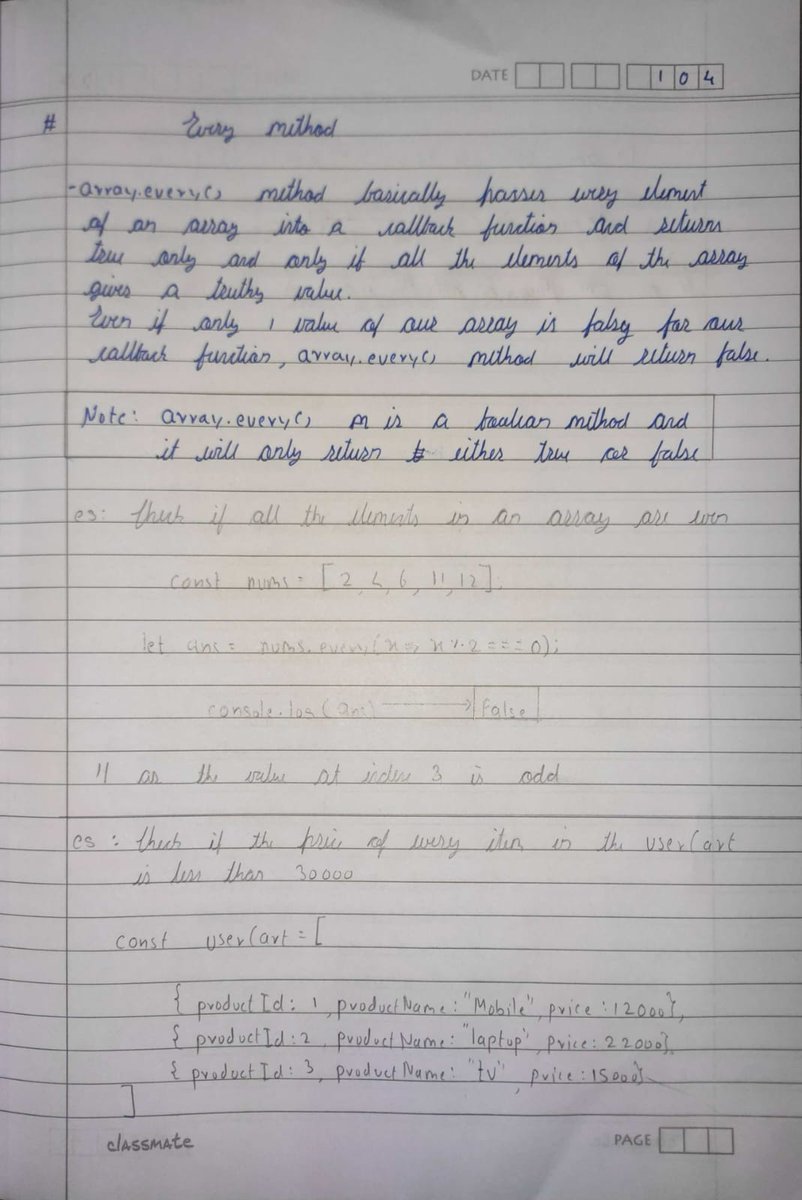 DATE 104
# Every method
- array.every() method basically passes every element
of an array into a callback function and returns
true only and only if all the elements of the array
gives a truthy value.
Even if only 1 value of our array is falsy for our
callback function, array.every() method will return false.
Note: array.every() is a boolean method and
it will only return either true or false
eg: Check if all the elements in an array are even
const nums = [2, 4, 6, 11, 12];
let ans = nums.every(x => x % 2 === 0);
console.log(ans) → false
// as the value at index 3 is odd
eg : Check if the price of every item in the userCart
is less than 30000
const userCart = [
{ productId: 1, productName: "Mobile", price : 12000},
{ productId: 2, productName: "laptop", price: 22000},
{ productId: 3, productName: "tv", price : 15000}
]
classmate PAGE